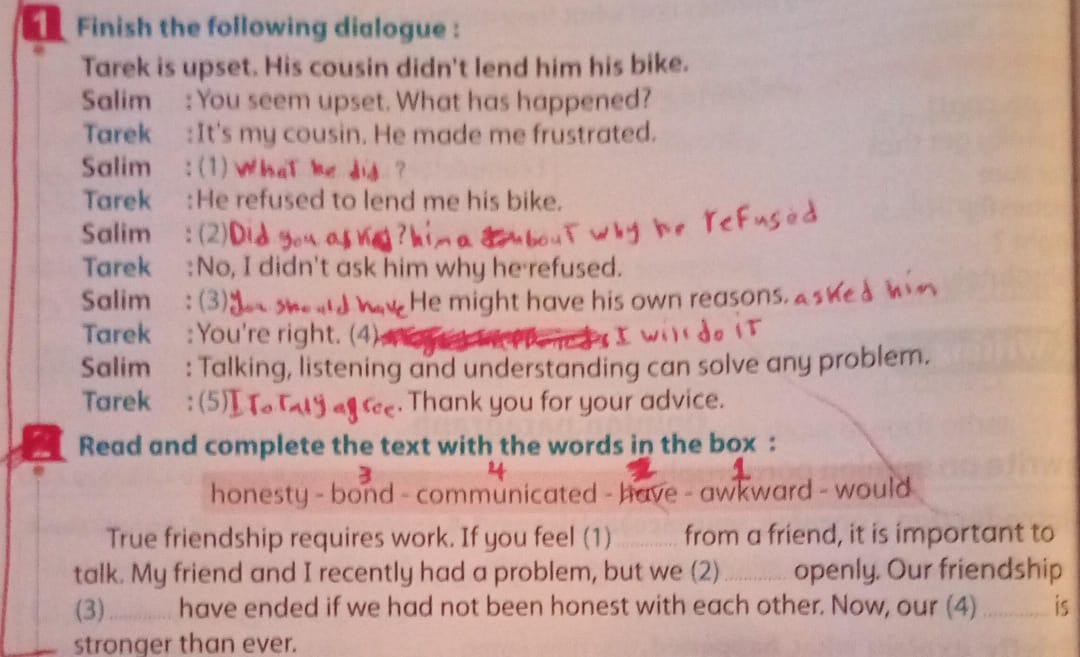 1 Finish the following dialogue :
Tarek is upset. His cousin didn't lend him his bike.
Salim : You seem upset. What has happened?
Tarek : It's my cousin. He made me frustrated.
Salim : (1) What he did ?
Tarek : He refused to lend me his bike.
Salim : (2) Did you asked? him about why he refused
Tarek : No, I didn't ask him why he refused.
Salim : (3) You should have He might have his own reasons. asked him
Tarek : You're right. (4) I will do it
Salim : Talking, listening and understanding can solve any problem.
Tarek : (5) I Totaly agree. Thank you for your advice.
2 Read and complete the text with the words in the box :
3 4 2 1
honesty - bond - communicated - have - awkward - would
True friendship requires work. If you feel (1) ........... from a friend, it is important to
talk. My friend and I recently had a problem, but we (2) ........... openly. Our friendship
(3) ........... have ended if we had not been honest with each other. Now, our (4) ........... is
stronger than ever.